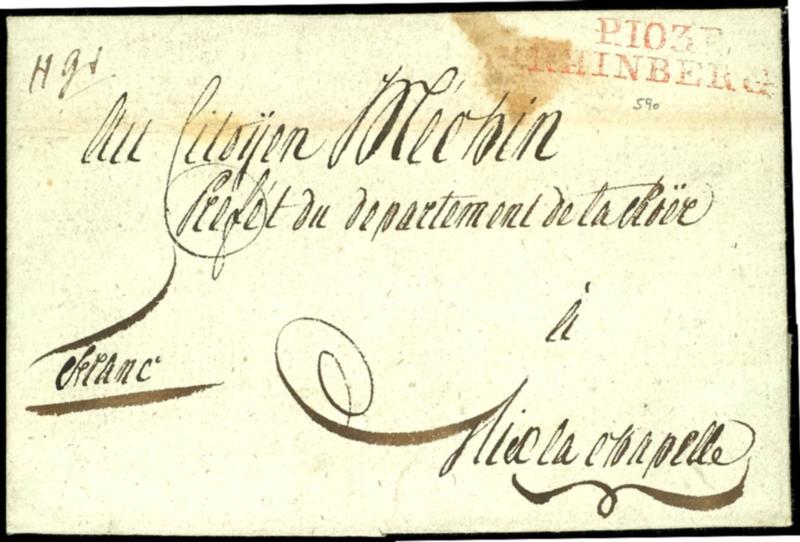 P.103.P.
RHINBERG
590
Au Citoÿen Méchin
Préfét du departement de la Roër
à
franc
Aix la chapelle